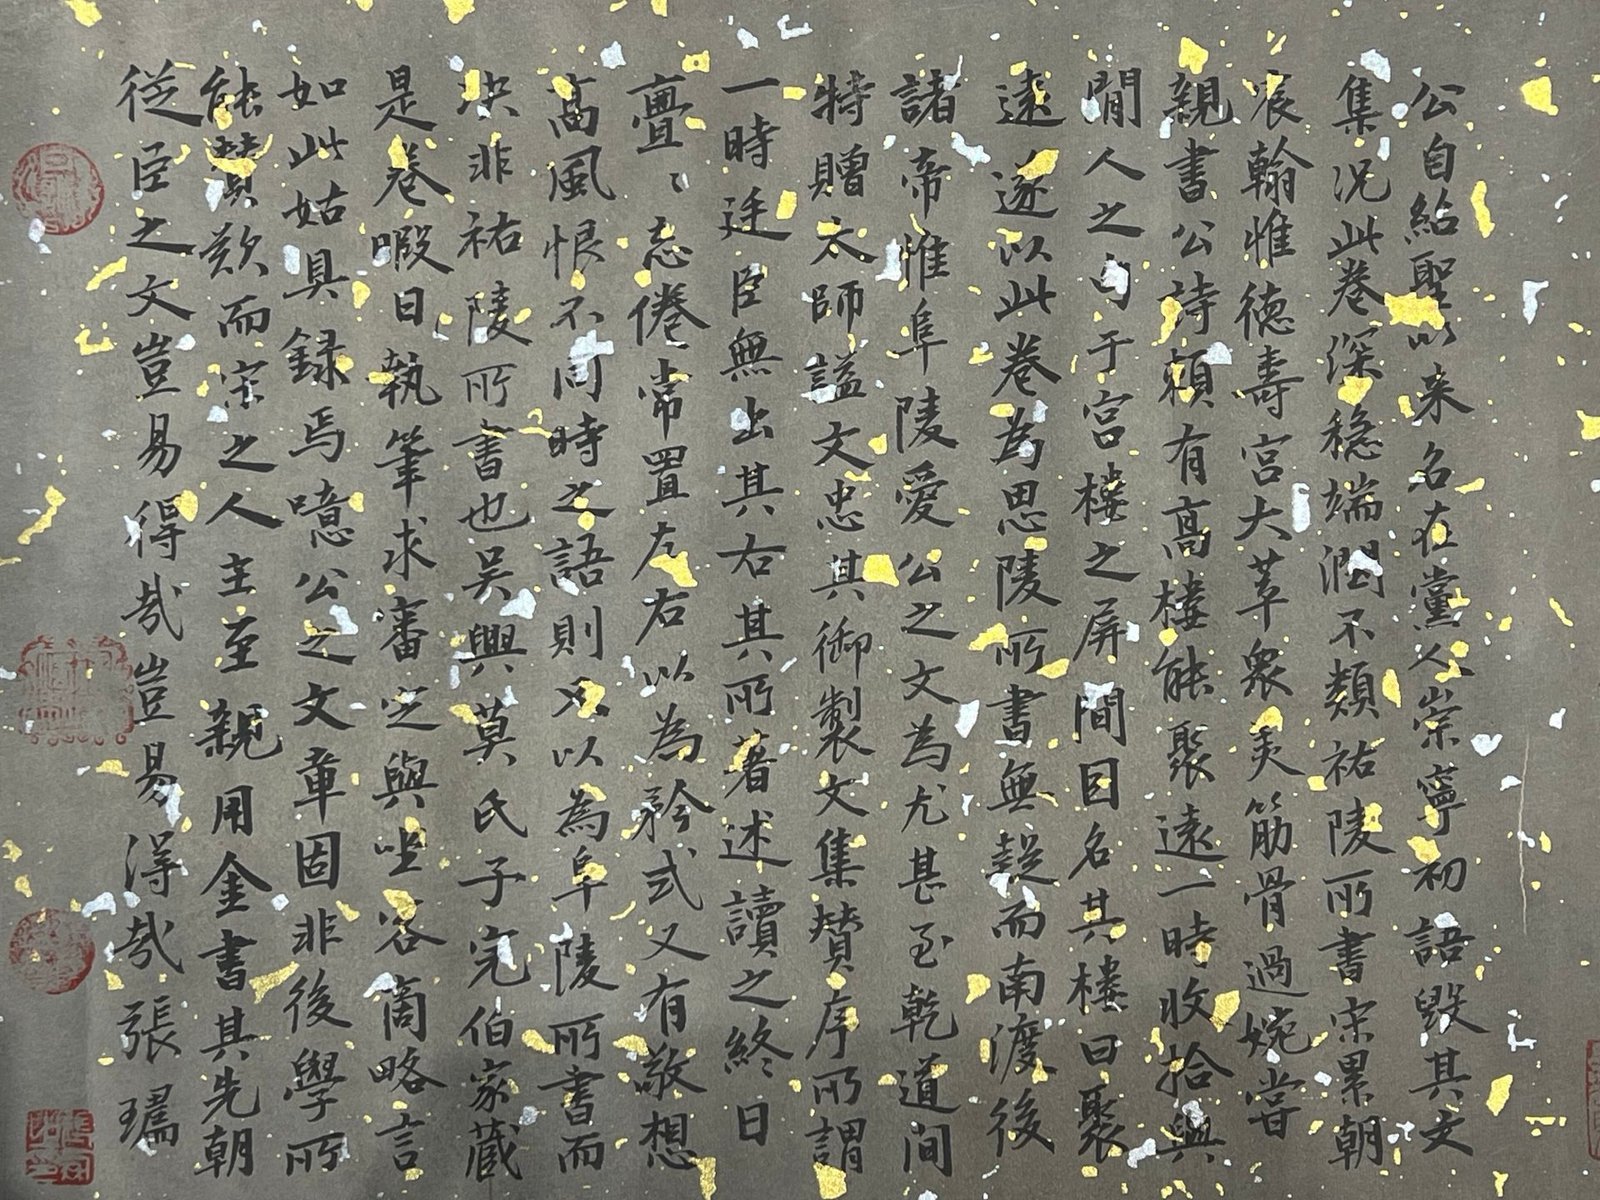 公自紹聖以来名在黨人崇寧初語毀其文
集况此卷深穏端潤不類祐陵所書宋累朝
宸翰惟德壽宮大萃衆美筋骨過婉嘗
親書公詩賴有高樓能聚遠一時收拾與
閒人之句于宮樓之屏間目名其樓曰聚
遠遂以此卷為思陵所書無疑而南渡後
諸帝惟阜陵愛公之文為尤甚至乾道间
特贈太師謚文忠其御製文集賛序所謂
一時廷臣無出其右其所著述讀之終日
亹〻忘倦常置左右以為矜式又有敬想
高風恨不同時之語則又以為阜陵所書而
决非祐陵所書也吴興莫氏子完伯家藏
是卷暇日執筆求審定與坐客啇略言
如此姑具録焉噫公之文章固非後學所
能賛歎而宋之人主至親用金書其先朝
從臣之文豈易得㦲豈易得㦲張瑞